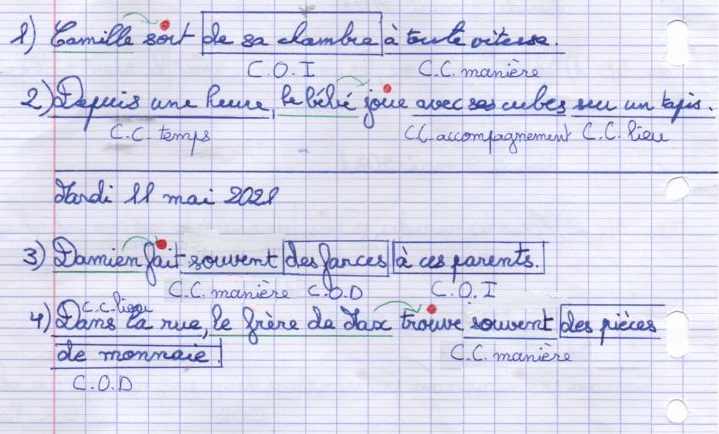 1) Camille sort de sa chambre à toute vitesse.
C.O.I C.C. manière
2) Depuis une heure, le bébé joue avec ses cubes sur un tapis.
C.C. temps C.C. accompagnement C.C. lieu
Mardi 11 mai 2021
3) Damien fait souvent des farces à ces parents.
C.C. manière C.O.D C.O.I
C.C. lieu
4) Dans la rue, le frère de Max trouve souvent des pièces
C.C. manière
de monnaie.
C.O.D